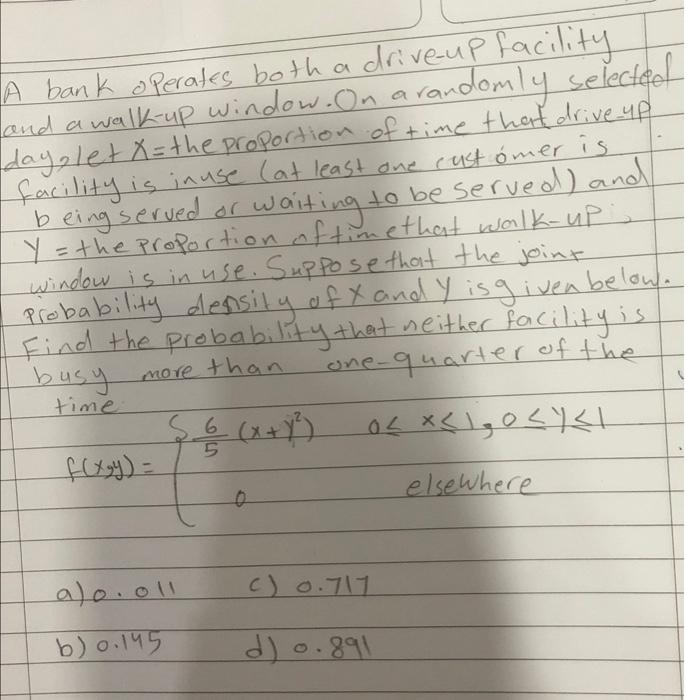 A bank operates both a drive-up facility
and a walk-up window. On a randomly selected
day, let X = the proportion of time that drive-up
facility is in use (at least one customer is
being served or waiting to be served) and
Y = the proportion of time that walk-up
window is in use. Suppose that the joint
probability density of X and Y is given below.
Find the probability that neither facility is
busy more than one-quarter of the
time
f(x,y) = { 6/5 (x+y²) 0≤ x≤1, 0≤y≤1
0 elsewhere
a) 0.011 c) 0.717
b) 0.145 d) 0.891